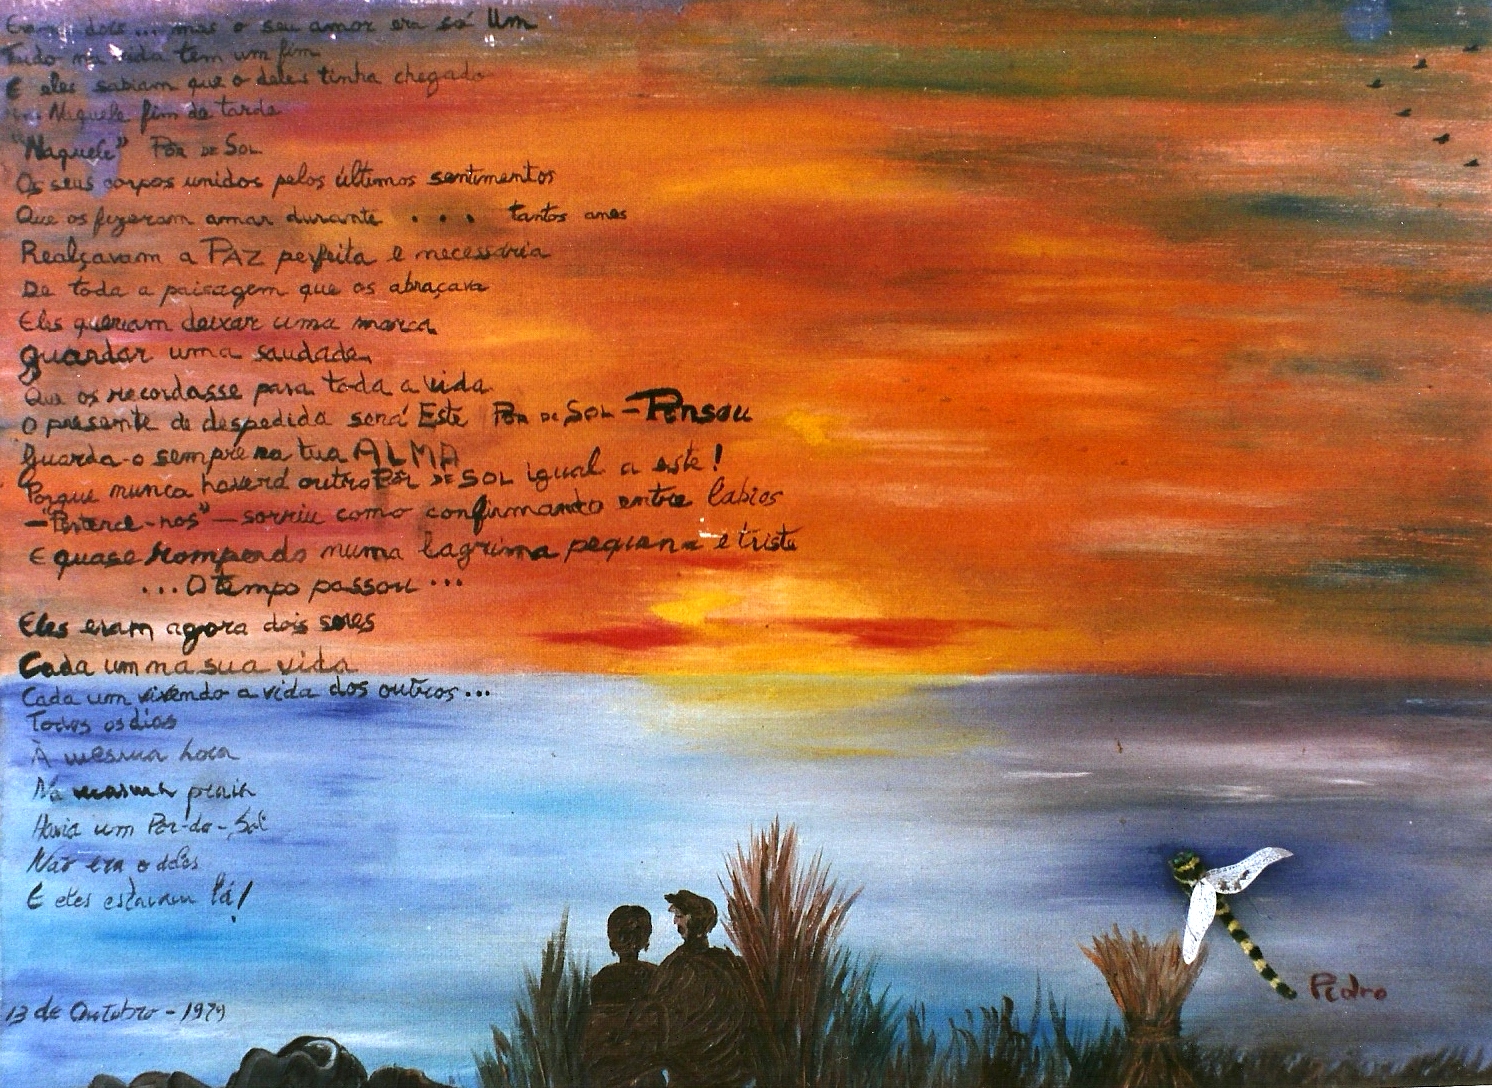 Eram dois... mas o seu amor era só Um
Tudo na vida tem um fim
E eles sabiam que o deles tinha chegado
Naquele fim de tarde
"Naquele" PÔR DE SOL
Os seus corpos unidos pelos últimos sentimentos
Que os fizeram amar durante . . . tantos anos
Realçavam a PAZ perfeita e necessária
De toda a paisagem que os abraçava
Eles queriam deixar uma marca
guardar uma saudade
Que os recordasse para toda a vida
O presente de despedida será Este PÔR DE SOL - Pensou
Guarda-o sempre na tua ALMA
Porque nunca haverá outro PÔR DE SOL igual a este!
- "Pertence-nos" - sorriu como confirmando entre labios
E quase rompendo numa lagrima pequena e triste
... O tempo passou ...
Eles eram agora dois seres
Cada um na sua vida
Cada um vivendo a vida dos outros...
Todos os dias
À mesma hora
Na mesma praia
Havia um Pôr-do-Sol
Não era o deles
E eles estavam lá!
13 de Outubro - 1979
Pedro